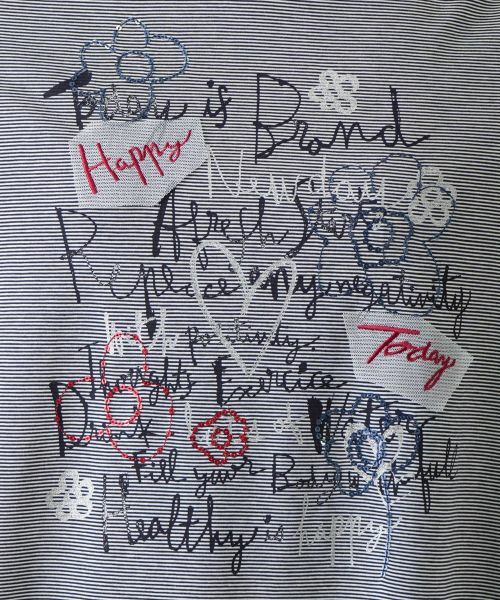 Today is Brand
Happy
New day
A fresh start
Replace any negativity
With positivity
Today
Thoughts Exercice
Drink of Water
Fill your Body full
Healthy is happy